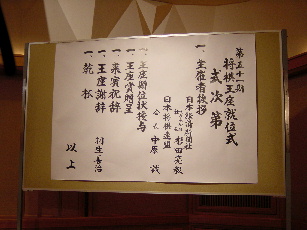 第五十一期
将棋王座就位式
式次第
一、主催者挨拶
日本経済新聞社
杉田亮毅
日本将棋連盟
会長 中原 誠
一、王座就位状授与
一、王座賞贈呈
一、来賓祝辞
一、王座謝辞 羽生善治
一、乾杯
以上